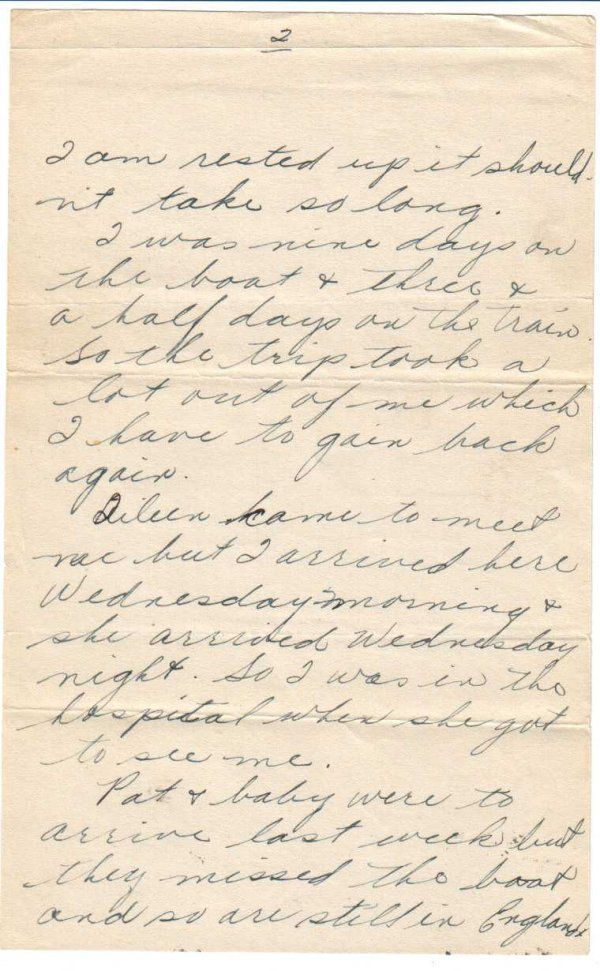 2
I am rested up it should
n't take so long.
I was nine days on
the boat & three &
a half days on the train.
So the trip took a
lot out of me which
I have to gain back
again.
Aileen came to meet
me but I arrived here
Wednesday morning &
she arrived Wednesday
night. So I was in the
hospital when she got
to see me.
Pat & baby were to
arrive last week but
they missed the boat
and so are still in England